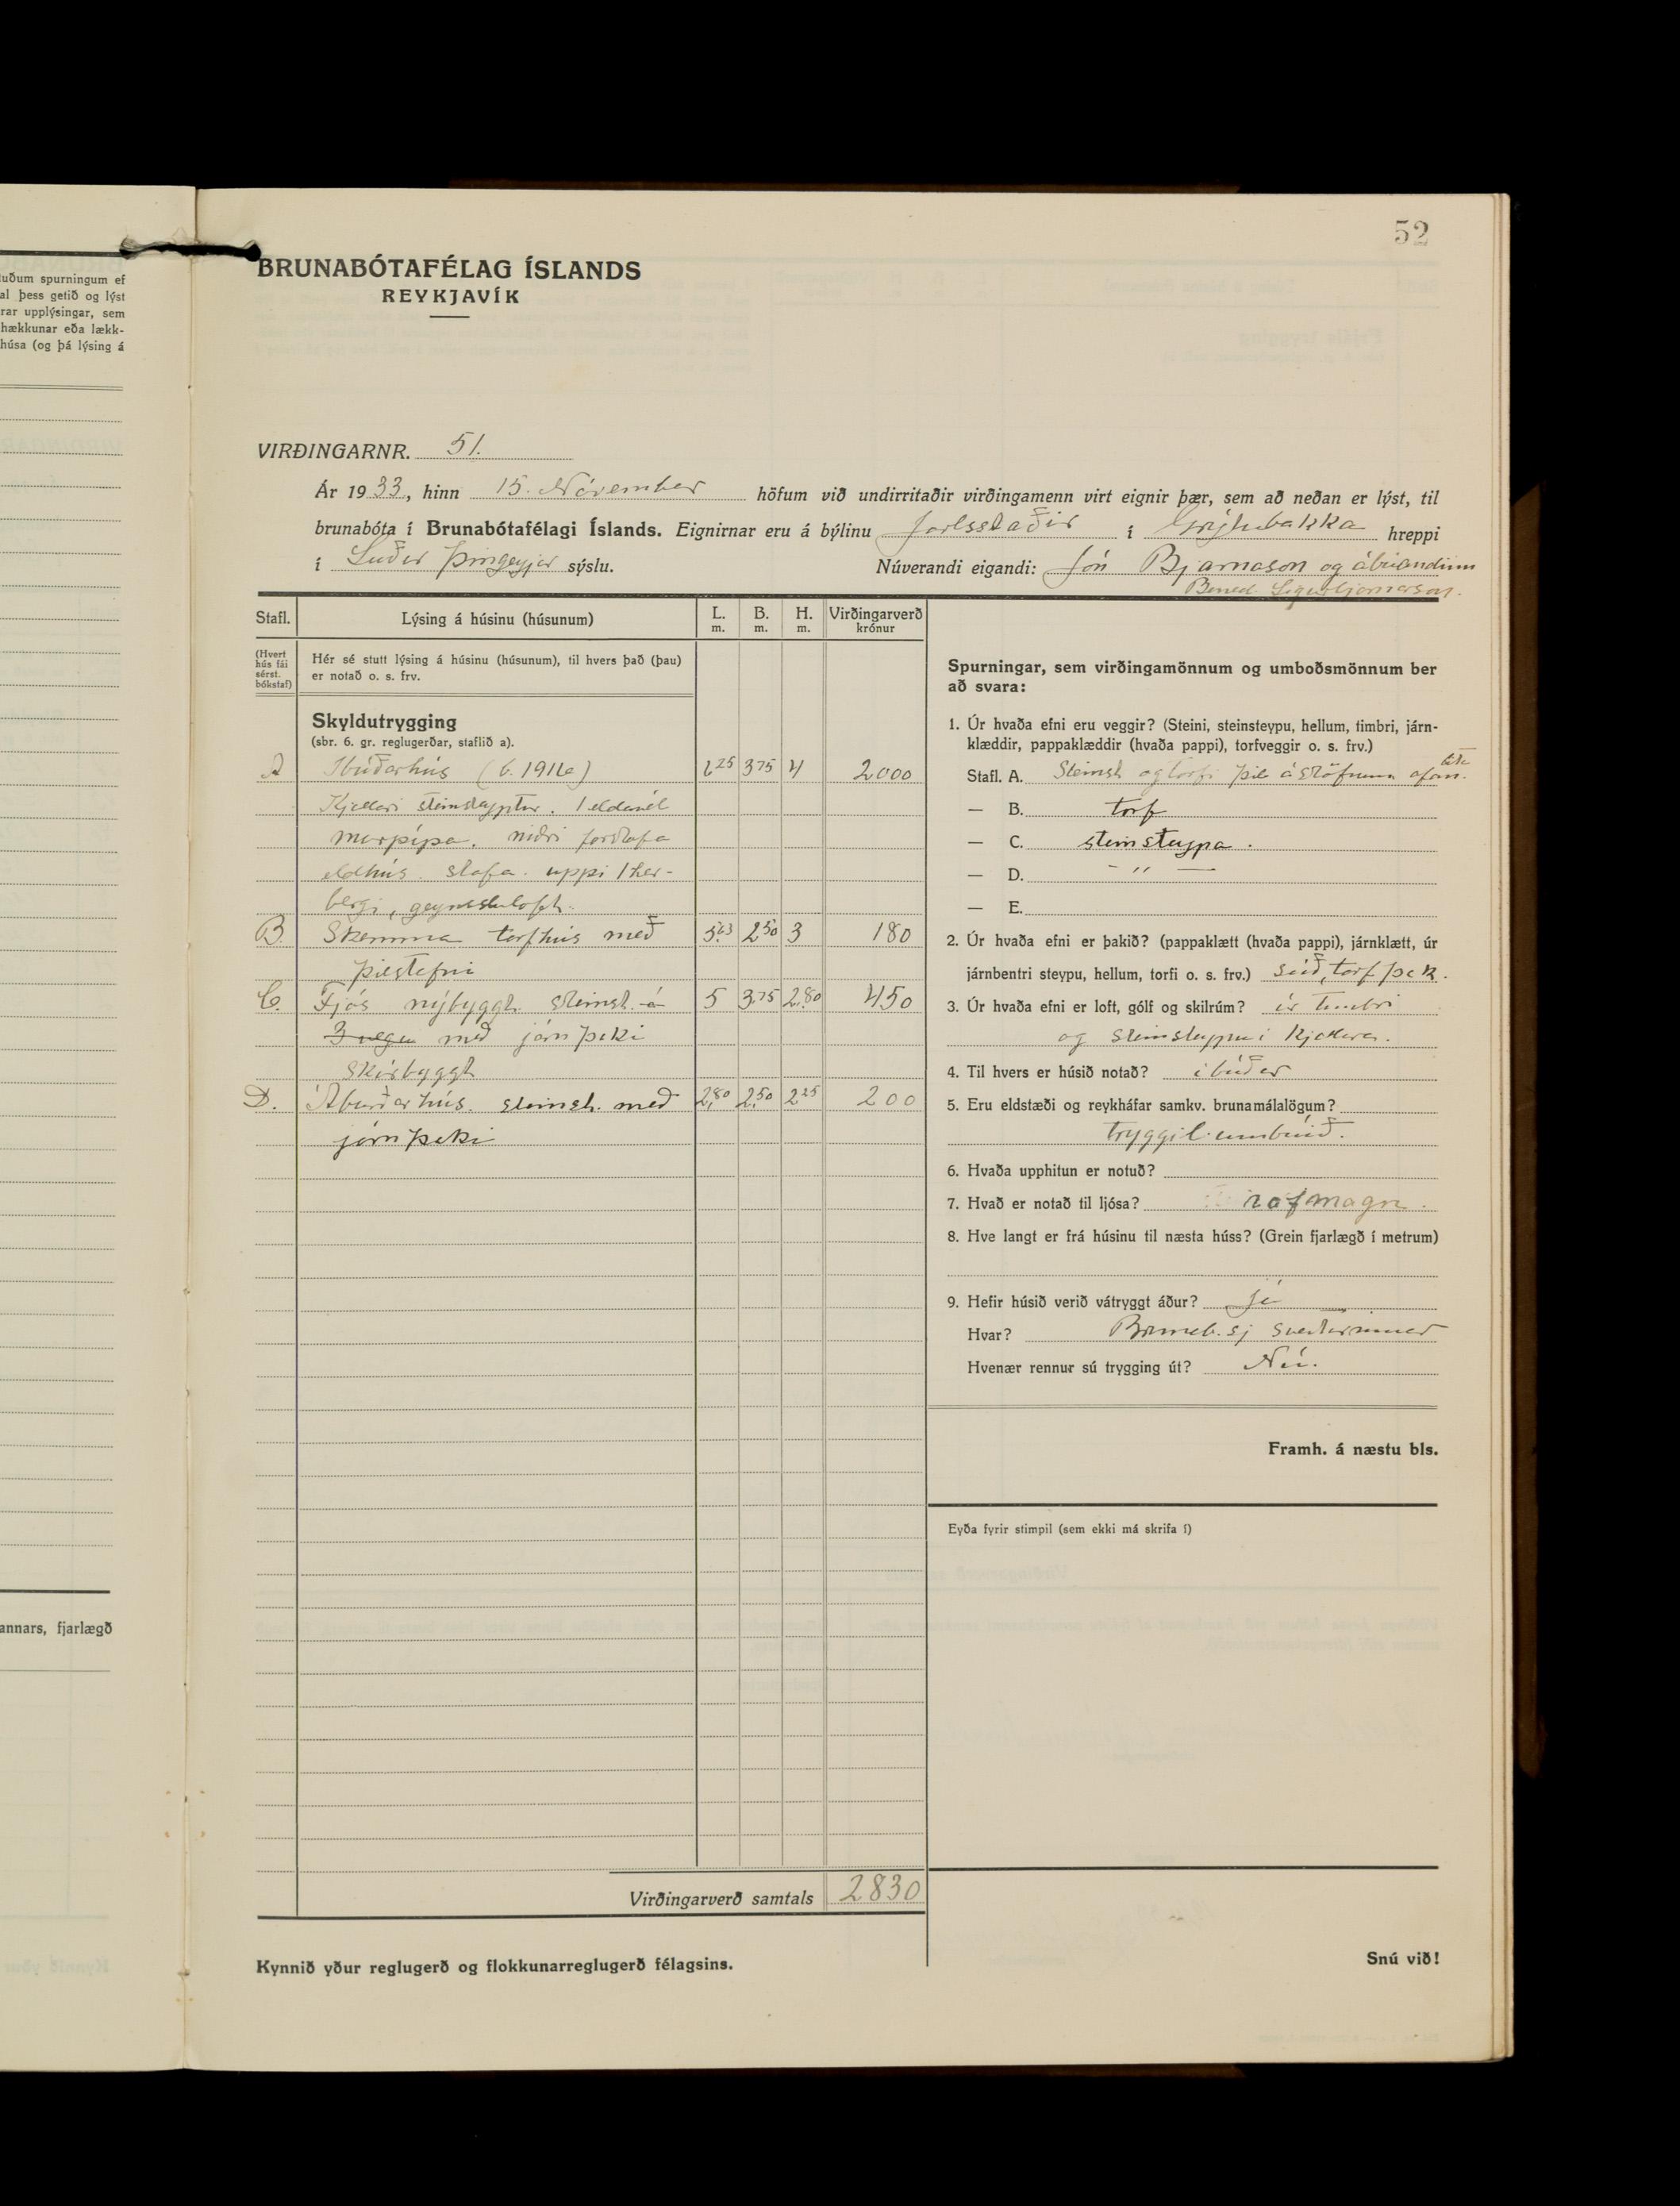 52
uðum spurningum ef
al þess getið og lýst
rar upplýsingar, sem
hækkunar eða lækk-
húsa (og þá lýsing á
annars, fjarlægð
BRUNABÓTAFÉLAG ÍSLANDS
REYKJAVÍK
VIRÐINGARNR. 51.
Ár 1933, hinn 15. Nóvember höfum við undirritaðir virðingamenn virt eignir þær, sem að neðan er lýst, til
brunabóta í Brunabótafélagi Íslands. Eignirnar eru á býlinu Jarlsstaðir í Grýtubakka hreppi
í Suður Þingeyjar sýslu. Núverandi eigandi: Jón Bjarnason og ábúandinn
Bened. Sigurbjarnarson.
Stafl. Lýsing á húsinu (húsunum) L. m. B. m. H. m. Virðingarverð krónur
(Hvert hús fái sérst. bókstaf)
Hér sé stutt lýsing á húsinu (húsunum), til hvers það (þau)
er notað o. s. frv.
Skyldutrygging
(sbr. 6. gr. reglugerðar, staflið a).
A Íbúðarhús 375 4 2000
Kjallari steinsteyptur. 1 eldavél
múrpípa. niðri forstofa
eldhús. stofa. uppi 1 her-
bergi, geymsluloft.
B. Skemma torfhús með 250 3 180
þilstafni
C. Fjós nýbyggt steinst. á 5 3.75 2.80 450
3 vegu með járnþaki
Skúrbyggt
D. Áburðarhús. steinst. með 2.80 2.50 225 200
járnþaki
Virðingarverð samtals 2830
Kynnið yður reglugerð og flokkunarreglugerð félagsins.
Spurningar, sem virðingamönnum og umboðsmönnum ber
að svara:
1. Úr hvaða efni eru veggir? (Steini, steinsteypu, hellum, timbri, járn-
klæddir, pappaklæddir (hvaða pappi), torfveggir o. s. frv.)
Stafl. A. Steinst og torfi þil á stöfnum
— B. torf
— C. steinsteypa.
— D. - " -
— E.
2. Úr hvaða efni er þakið? (pappaklætt (hvaða pappi), járnklætt, úr
járnbentri steypu, hellum, torfi o. s. frv.) súð, torfþak.
3. Úr hvaða efni er loft, gólf og skilrúm? úr timbri
og steinsteypu í kjallara.
4. Til hvers er húsið notað? íbúðar
5. Eru eldstæði og reykháfar samkv. brunamálalögum?
tryggil. umbúið.
6. Hvaða upphitun er notuð?
7. Hvað er notað til ljósa? rafmagn.
8. Hve langt er frá húsinu til næsta húss? (Grein fjarlægð í metrum)
9. Hefir húsið verið vátryggt áður? já
Hvar? Brunab.sj sveitarinnar
Hvenær rennur sú trygging út? Nú.
Framh. á næstu bls.
Eyða fyrir stimpil (sem ekki má skrifa í)
Snú við!